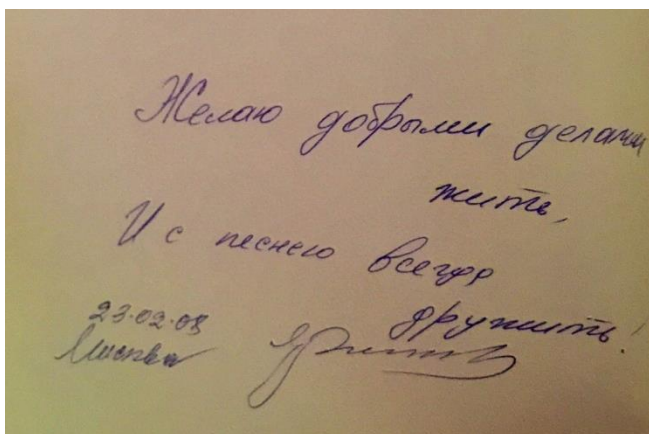 Желаю добрыми делами
жить,
И с песнею всегда
дружить!
23.02.08
Москва